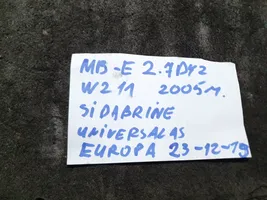 MB-E 2.7DYZ
W211 2005M.
SIDABRINE
UNIVERSALAS
EUROPA 23-12-19